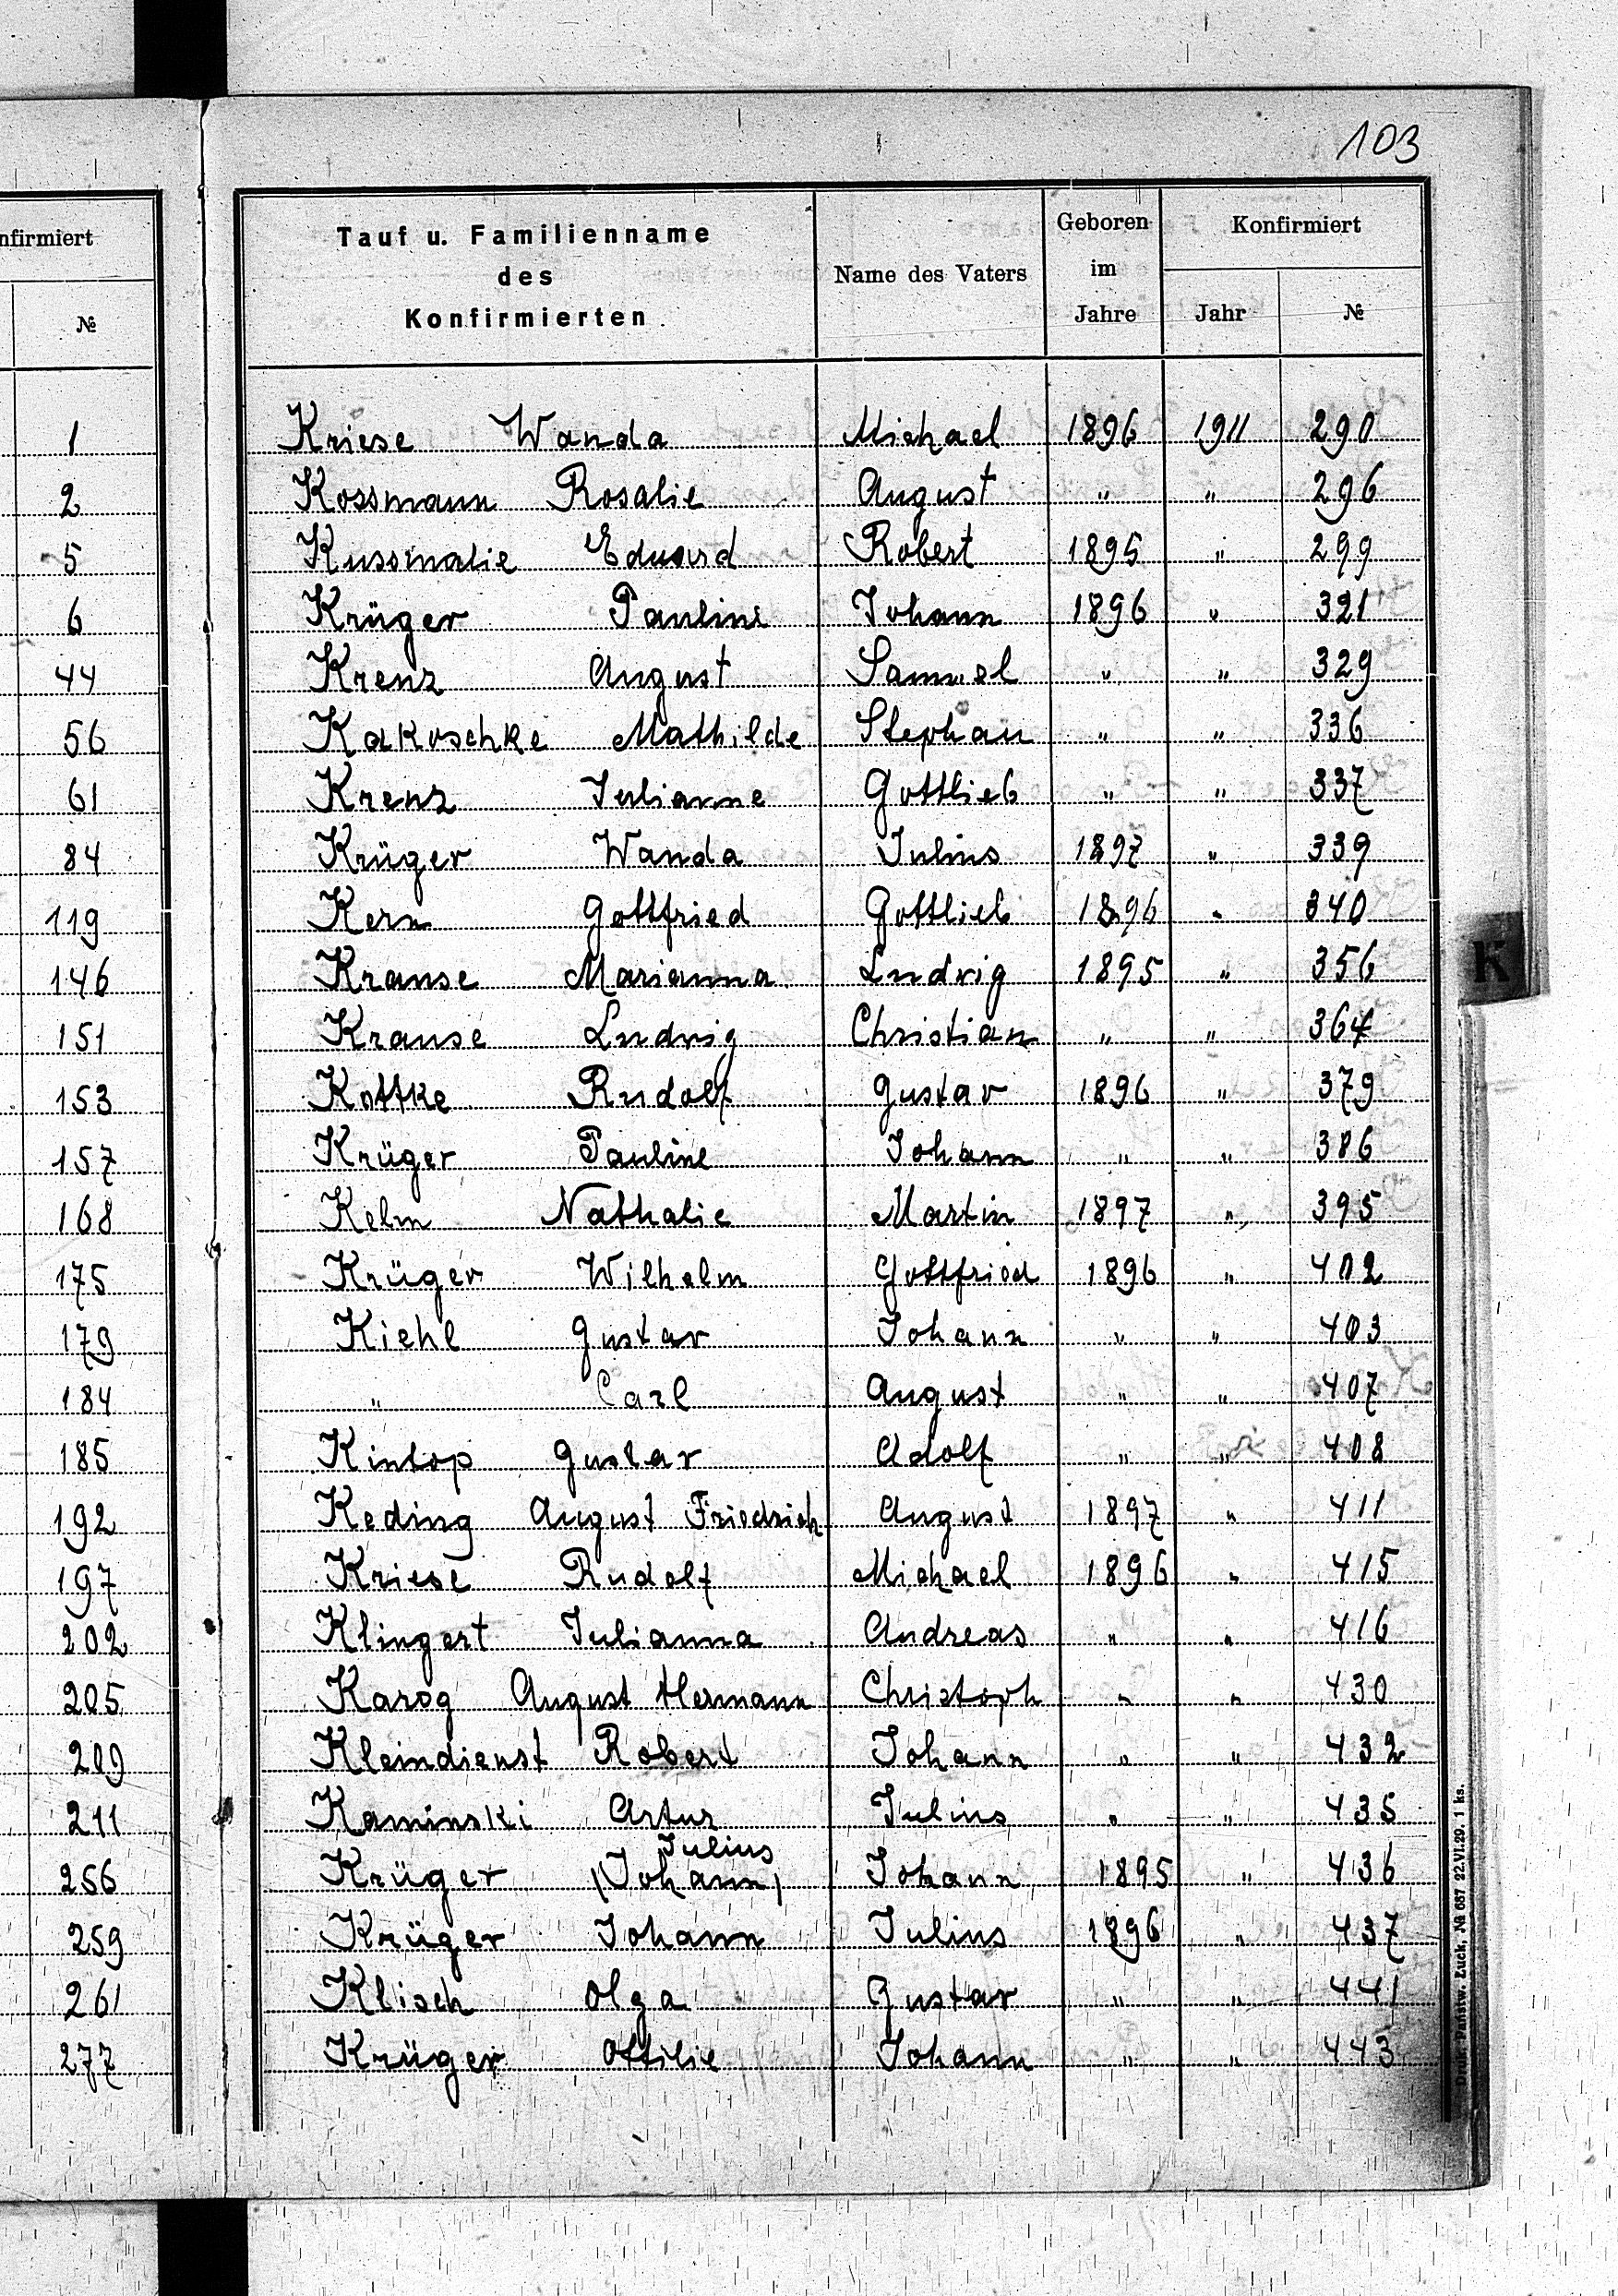 103
nfirmiert
№
1
2
5
6
44
56
61
84
119
146
151
153
157
168
175
179
184
185
192
197
202
205
209
211
256
259
261
277
Tauf u. Familienname des Konfirmierten Name des Vaters Geboren im Jahre Konfirmiert Jahr №
Kriese Wanda Michael 1896 1911 290
Kossmann Rosalie August " " 296
Kussmalie Eduard Robert 1895 " 299
Krüger Pauline Johann 1896 " 321
Krenz August Samuel " " 329
Kakoschke Mathilde Stephan " " 336
Krenz Julianne Gottlieb " " 337
Krüger Wanda Julius 1897 " 339
Kern Gottfried Gottlieb 1896 " 340
Krause Marianna Ludwig 1895 " 356
Krause Ludwig Christian " " 364
Kottke Rudolf Gustav 1896 " 379
Krüger Pauline Johann " " 386
Kelm Nathalie Martin 1897 " 395
Krüger Wilhelm Gottfried 1896 " 402
Kiehl Gustav Johann " " 403
" Carl August " " 407
Kintop Gustav Adolf " " 408
Keding August Friedrich August 1897 " 411
Kriese Rudolf Michael 1896 " 415
Klingert Julianna Andreas " " 416
Karog August Hermann Christoph " " 430
Kleindienst Robert Johann " " 432
Kaminski Artur Julius " " 435
Julius
Krüger (Johann) Johann 1895 " 436
Krüger Johann Julius 1896 " 437
Klisch Olga Gustav " " 441
Krüger Ottilie Johann " " 443
K
Druk. Państw. Łuck, № 687 22.VI.29. 1 ks.